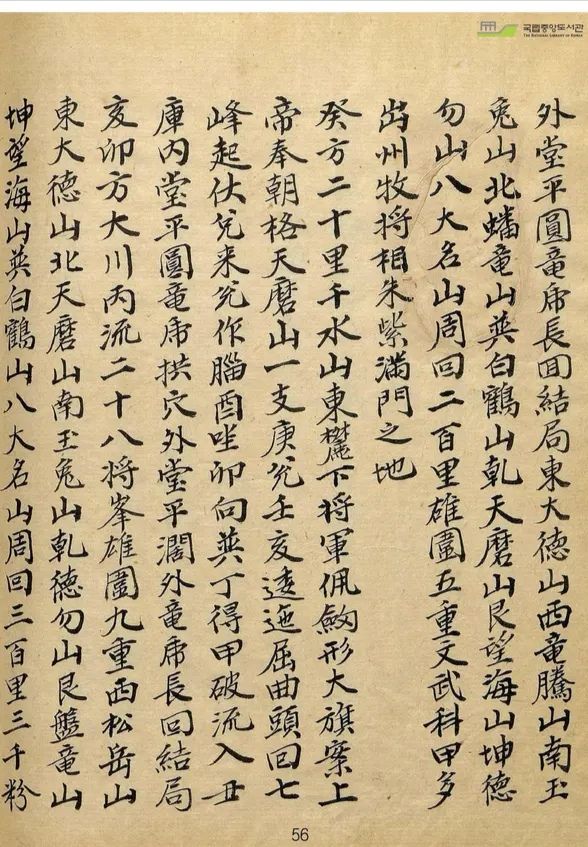 국립중앙도서관
THE NATIONAL LIBRARY OF KOREA
外堂平圓竜席長回結局東大德山西竜騰山南玉
兔山北蟠竜山巽白鶴山乾天磨山艮望海山坤德
勿山八大名山周回二百里雄圍五重文武科甲多
出州牧将相朱紫滿門之地
癸方二十里千水山東麓下将軍佩劔形大旗案上
帝奉朝格天磨山一支庚兊壬亥逶迤屈曲頭回七
峰起伏兊来兊作腦酉坐卯向巽丁得甲破流入丑
庫內堂平圓竜席拱穴外堂平濶外竜席長回結局
亥卯方大川丙流二十八将峯雄圍九重西松岳山
東大德山北天磨山南玉兔山乾德勿山艮盤竜山
坤望海山巽白鶴山八大名山周回三百里三千粉
56